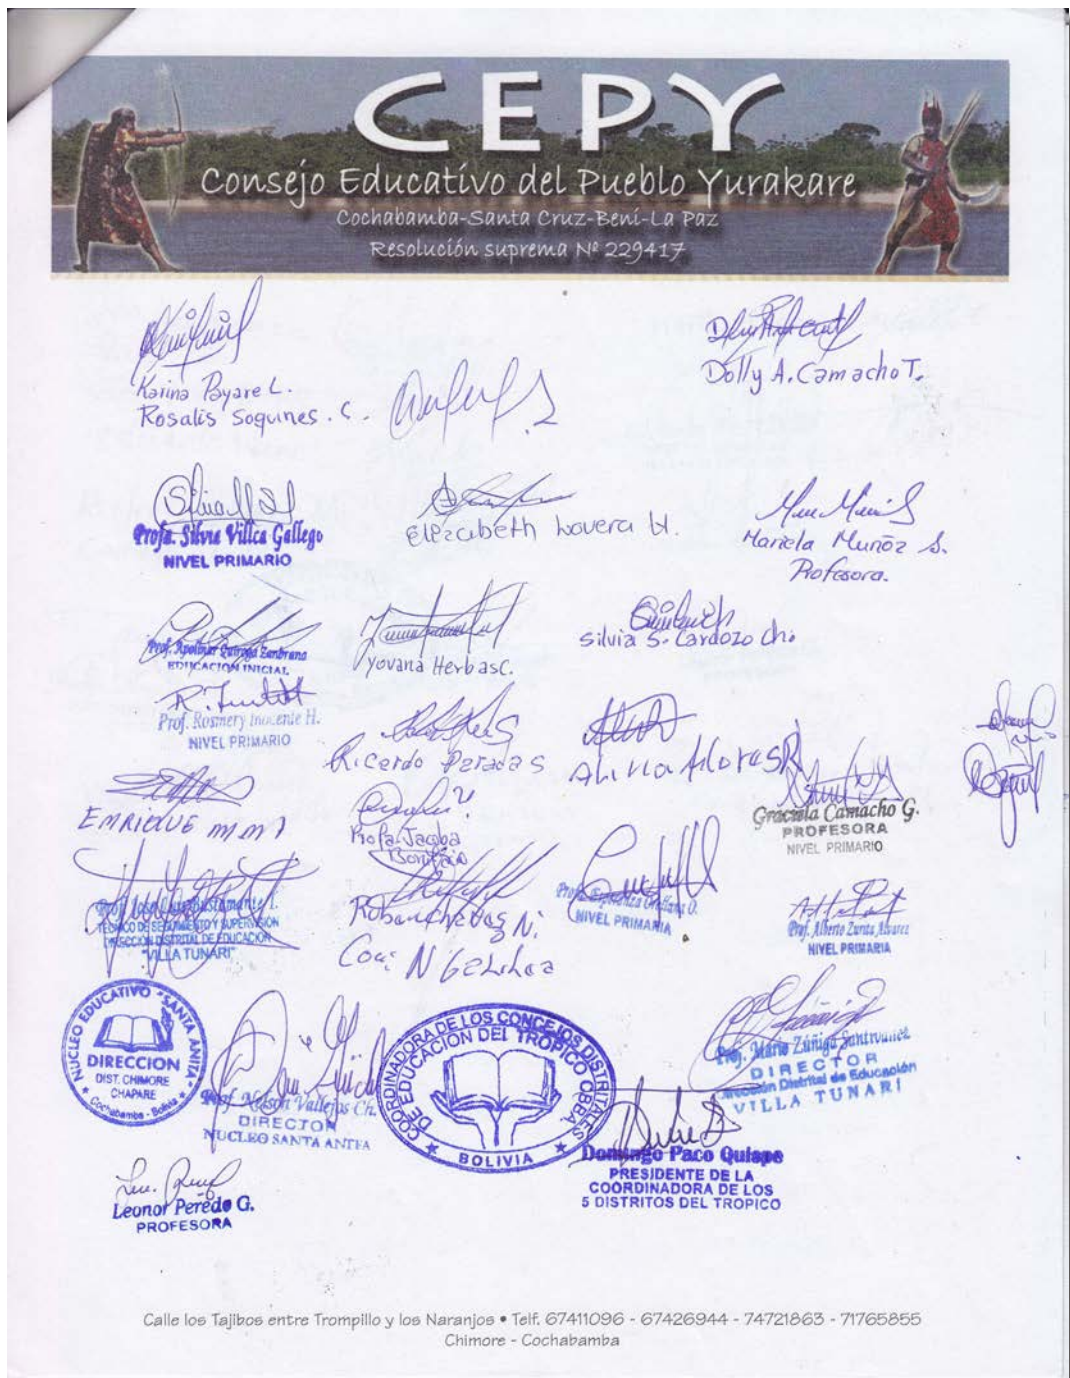 CEPY
Consejo Educativo del Pueblo Yurakare
Cochabamba-Santa Cruz-Beni-La Paz
Resolución suprema Nº 229417
Karina Payare L.
Rosalis Soquines. C.
Dolly A. Camacho T.
Profa. Silvia Villca Gallego
NIVEL PRIMARIO
Elizabeth Lovera H.
Mariela Muñoz S.
Profesora.
Prof. Apolinar Quiroga Zambrana
EDUCACION INICIAL
Yovana Herbas C.
Silvia S. Cardozo Ch.
Prof. Rosmery Inocente H.
NIVEL PRIMARIO
Ricardo Paradas
Alivia Flores R
ENRIQUE
Profa. Jacoba
Graciela Camacho G.
PROFESORA
NIVEL PRIMARIO
Prof. Jose Luis Bustamante T.
TECNICO DE SEGUIMIENTO Y SUPERVISION
DIRECCION DISTRITAL DE EDUCACION
"VILLA TUNARI"
Prof. Esperanza Orellana O.
NIVEL PRIMARIA
Prof. Alberto Zurita Alvarez
NIVEL PRIMARIA
NUCLEO EDUCATIVO "SANTA ANITA"
DIRECCION
DIST. CHIMORE
CHAPARE
Cochabamba - Bolivia
Prof. Nelson Vallejos Ch.
DIRECTOR
NUCLEO SANTA ANITA
COORDINADORA DE LOS CONCEJOS DISTRITALES
DE EDUCACION DEL TROPICO CBBA.
BOLIVIA
Prof. Mario Zúñiga
DIRECTOR
Dirección Distrital de Educación
VILLA TUNARI
Domingo Paco Quispe
PRESIDENTE DE LA
COORDINADORA DE LOS
5 DISTRITOS DEL TROPICO
Leonor Peredo G.
PROFESORA
Calle los Tajibos entre Trompillo y los Naranjos • Telf. 67411096 - 67426944 - 74721863 - 71765855
Chimore - Cochabamba